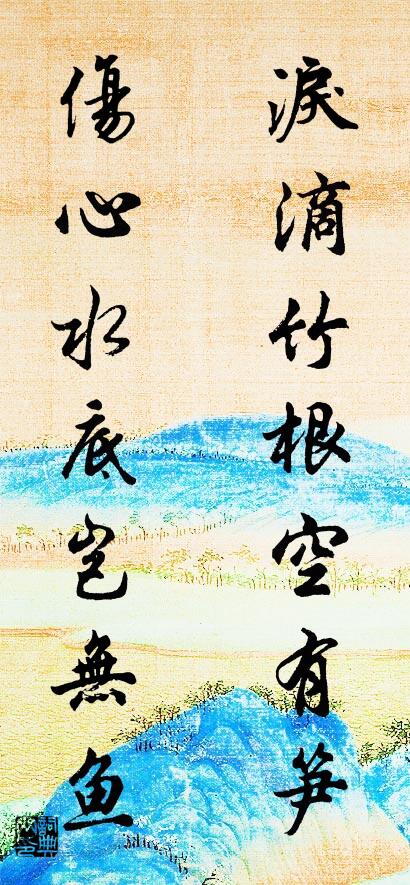 淚滴竹根空有笋
傷心水底豈無魚